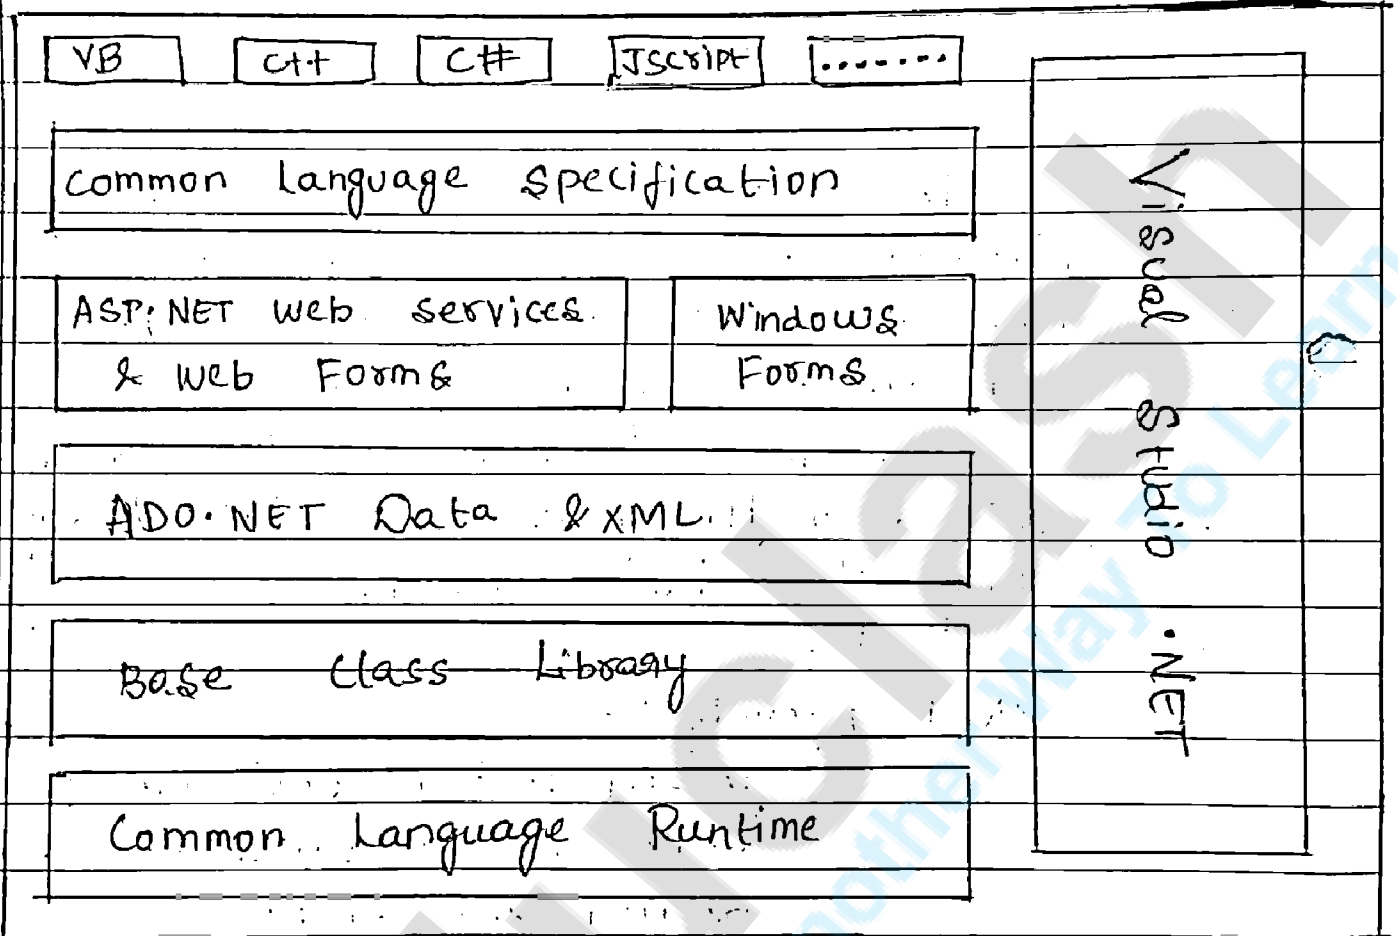 VB
C++
C#
JScript
.......
Common Language Specification
ASP.NET Web Services
& Web Forms
Windows
Forms
ADO.NET Data & XML
Base Class Library
Common Language Runtime
Visual Studio .NET
uclash
nother Way To Learn